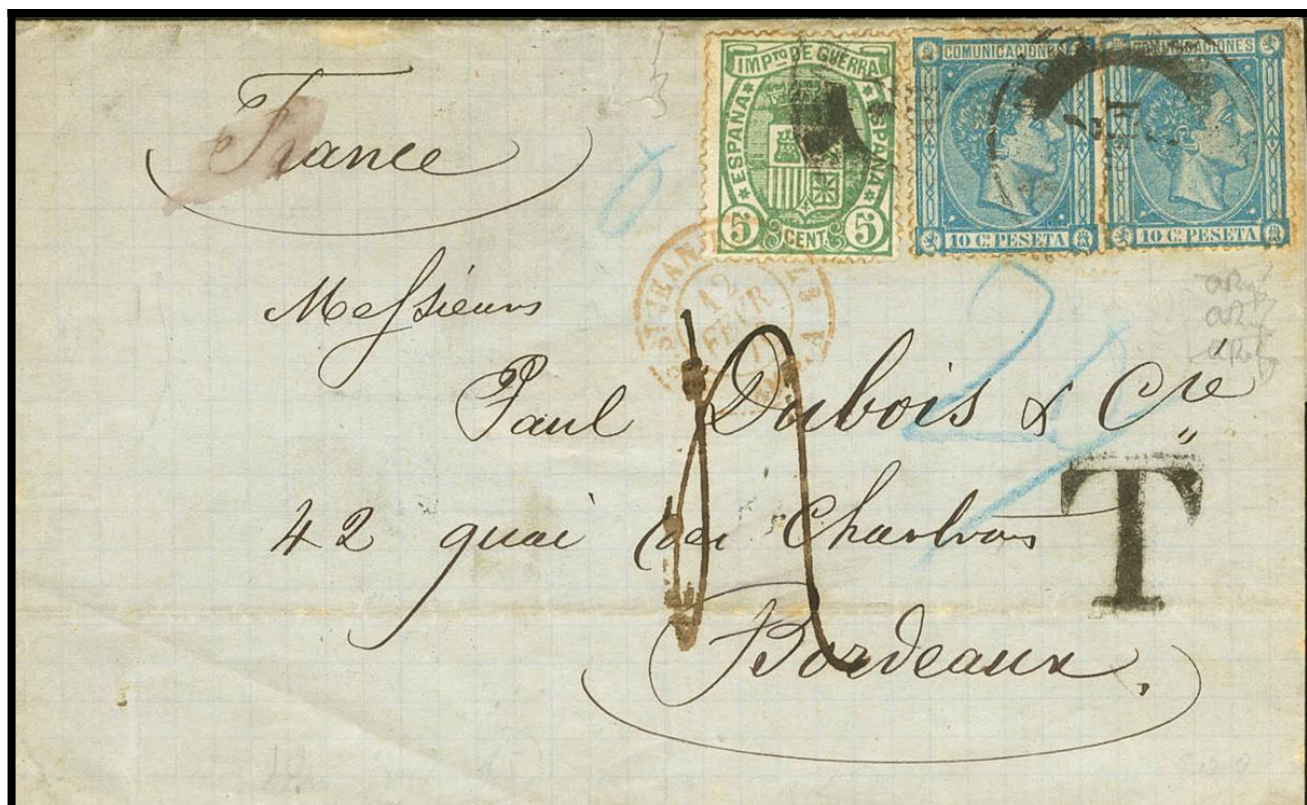 IMPTO DE GUERRA
ESPAÑA ESPAÑA
5 CENT. 5
COMUNICACIONES
10 Cs PESETA
COMUNICACIONES
10 Cs PESETA
France
ST JEAN
12
FEVR
Messieurs
Paul Dubois & Cie
42 quai des Chartrons
T
Bordeaux